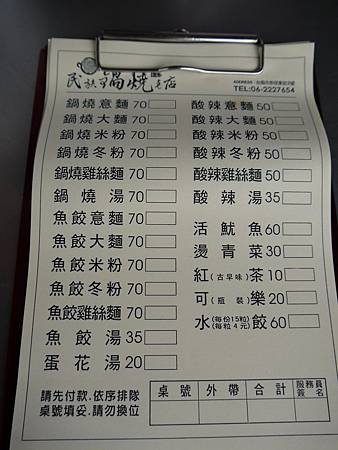 民族鍋燒老店
TEL:06-2227654
鍋燒意麵 70
鍋燒大麵 70
鍋燒米粉 70
鍋燒冬粉 70
鍋燒雞絲麵 70
鍋燒湯 70
魚餃意麵 70
魚餃大麵 70
魚餃米粉 70
魚餃冬粉 70
魚餃雞絲麵 70
魚餃湯 35
蛋花湯 20
酸辣意麵 50
酸辣大麵 50
酸辣米粉 50
酸辣冬粉 50
酸辣雞絲麵 50
酸辣湯 35
活魷魚 60
燙青菜 30
紅(古早味)茶 10
可(瓶裝)樂 20
水(每份15粒)(每粒4元)餃 60
請先付款.依序排隊
桌號填妥.請勿換位
桌號 外帶 合計 服務員簽名